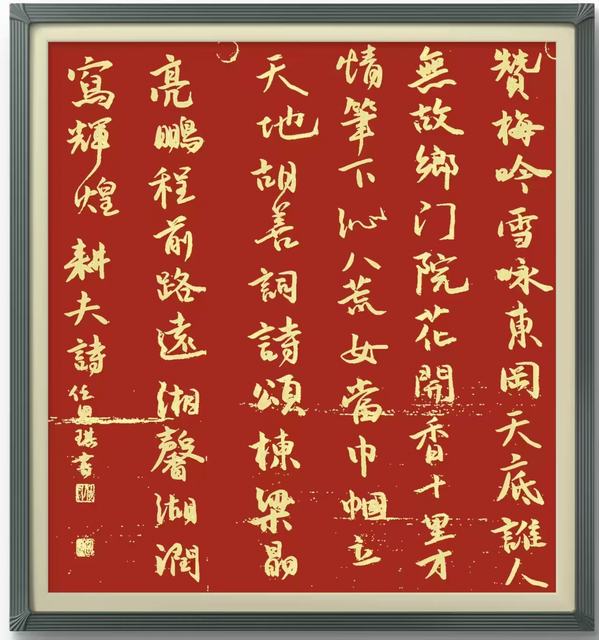 贊梅吟雪咏東岡天底誰人
無故鄉门院花開香十里才
情筆下沁八荒女當巾幗立
天地胡善詞詩頌棟梁晶
亮鵬程前路遠湘馨湖潤
寫輝煌 耕夫詩 任琪書